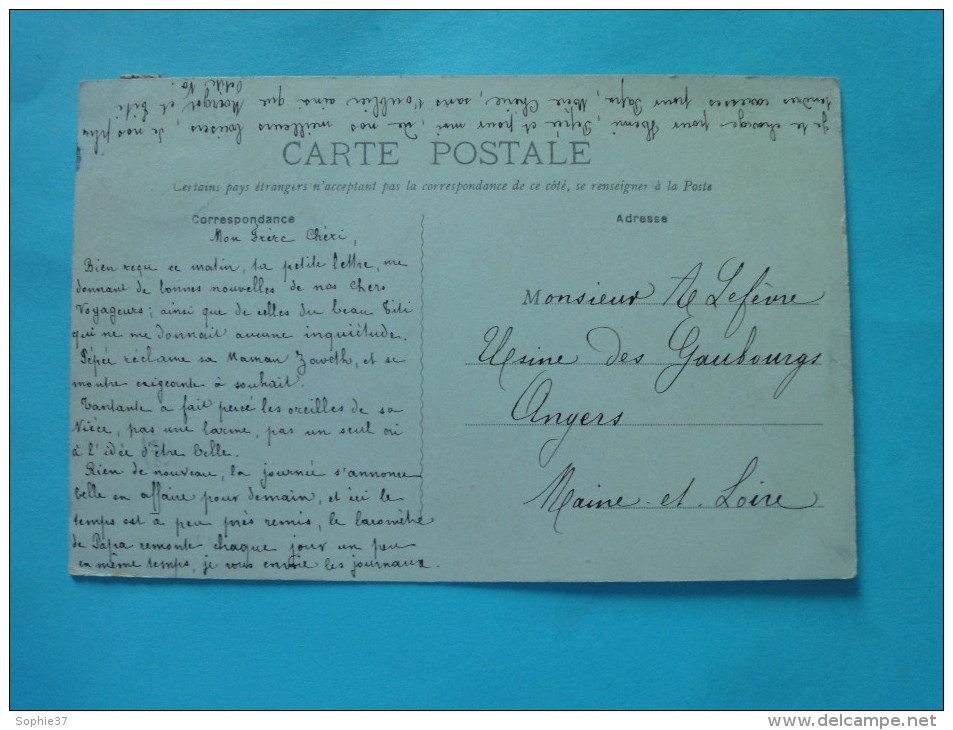 CARTE POSTALE
Certains pays étrangers n'acceptant pas la correspondance de ce côté, se renseigner à la Poste
Correspondance
Mon Frère Chéri,
Bien reçu ce matin, ta petite lettre, me
donnant de bonnes nouvelles de nos chers
Voyageurs; ainsi que de celles du beau Titi
qui ne me donnait aucune inquiétude.
Pépée réclame sa Maman Zaveth, et se
montre exigeante à souhait.
Tantante a fait percé les oreilles de sa
Nièce, pas une larme, pas un seul cri
à l'idée d'être belle.
Rien de nouveau, la journée s'annonce
belle en affaire pour demain, et ici le
temps est à peu près remis, le baromètre
de Papa remonte chaque jour un peu
en même temps, je vous envoie les journaux.
je te charge pour Mémi, Pépée et pour moi, de nos meilleurs baisers, de nos plus
tendres caresses pour Papa, Mère Chérie, sans t'oublier ainsi que Margot et Titi
Petite
Adresse
Monsieur A Lefèvre
Usine des Gaubourgs
Angers
Maine-et-Loire
Sophie37
www.delcampe.net